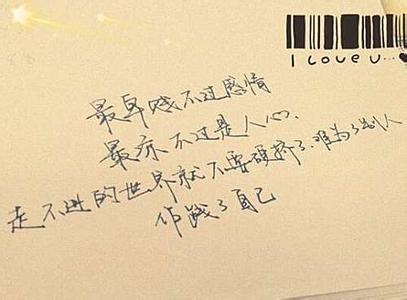 I Love u...
最卑贱不过感情
最凉不过是人心.
走不进的世界就不要硬挤了.难为了别人
作贱了自己